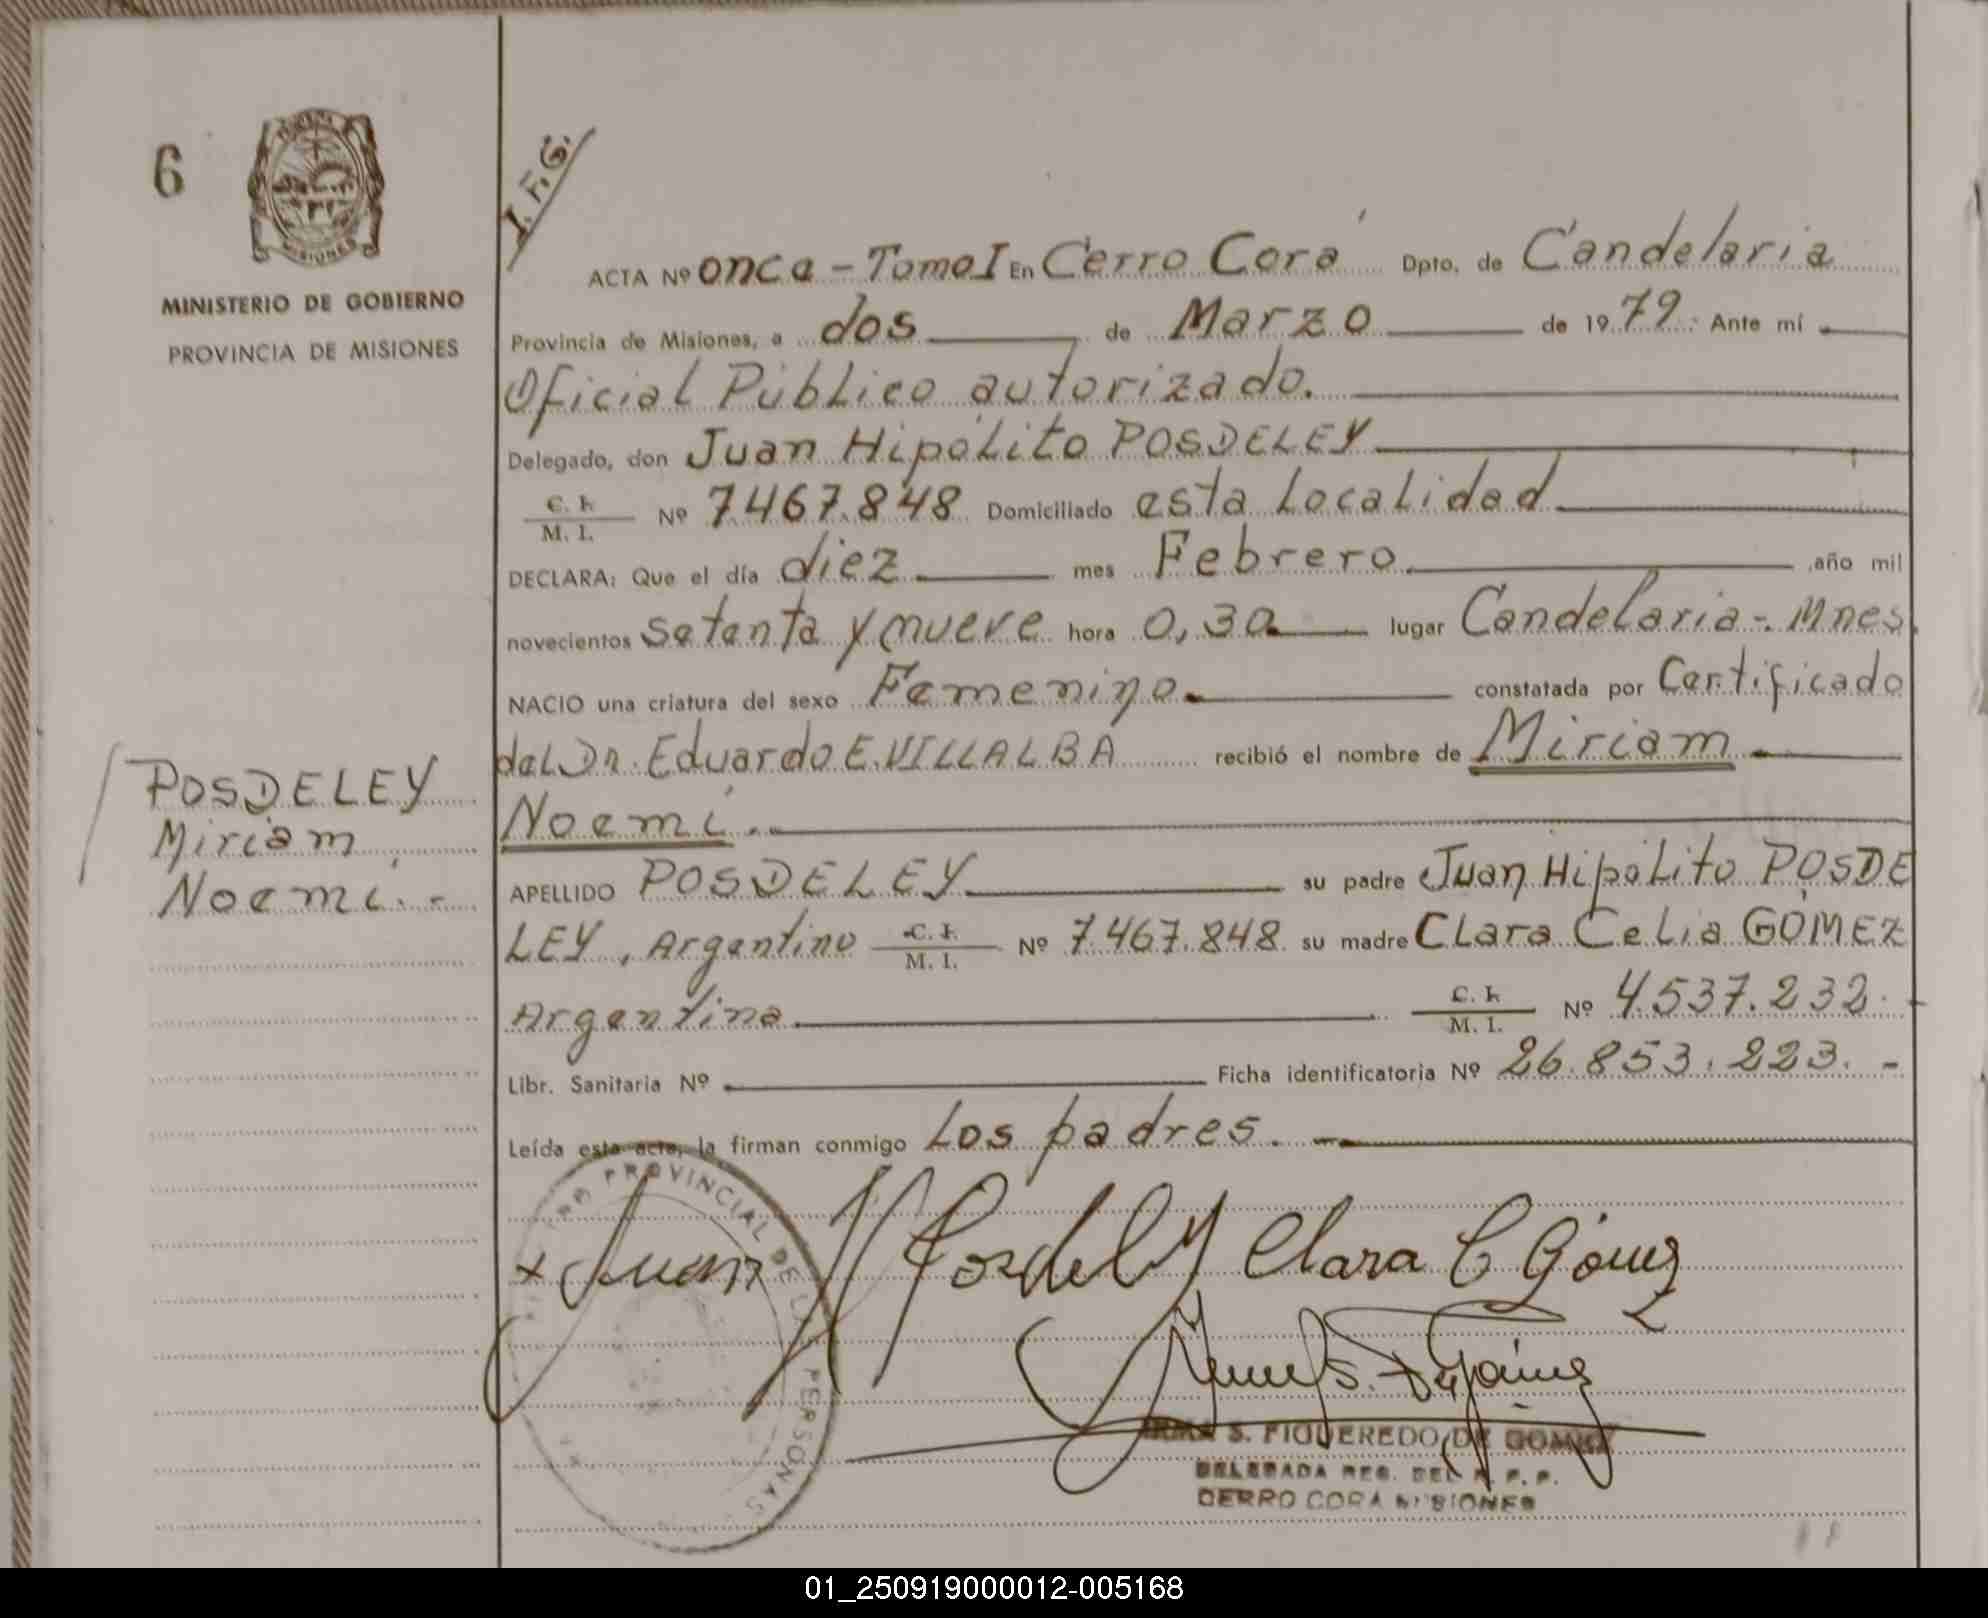 6
MINISTERIO DE GOBIERNO
PROVINCIA DE MISIONES
I.F.G.
ACTA Nº once - Tomo I En Cerro Corá Dpto. de Candelaria
Provincia de Misiones, a dos de Marzo de 1979. Ante mí
Oficial Público autorizado.
Delegado, don Juan Hipólito POSDELEY
C. I. M. I. Nº 7.467.848 Domiciliado esta Localidad
DECLARA: Que el día diez mes Febrero año mil
novecientos setenta y nueve hora 0,30 lugar Candelaria-. Mnes.
NACIO una criatura del sexo Femenino constatada por Certificado
del Dr. Eduardo E. VILLALBA recibió el nombre de Miriam
Noemí.
APELLIDO POSDELEY su padre Juan Hipólito POSDE
LEY, Argentino C. I. M. I. Nº 7.467.848 su madre Clara Celia GÓMEZ
Argentina C. I. M. I. Nº 4.537.232.
Libr. Sanitaria Nº Ficha identificatoria Nº 26.853.223.-
Leída esta acta, la firman conmigo Los padres.-
POSDELEY
Miriam
Noemí.-
PROVINCIAL DE LAS PERSONAS
x Juan H Posdeley Clara C Gómez
IRMA S. FIGUEREDO DE GOMEZ
DELEGADA REG. DEL P. P.
CERRO CORA MISIONES
01_250919000012-005168